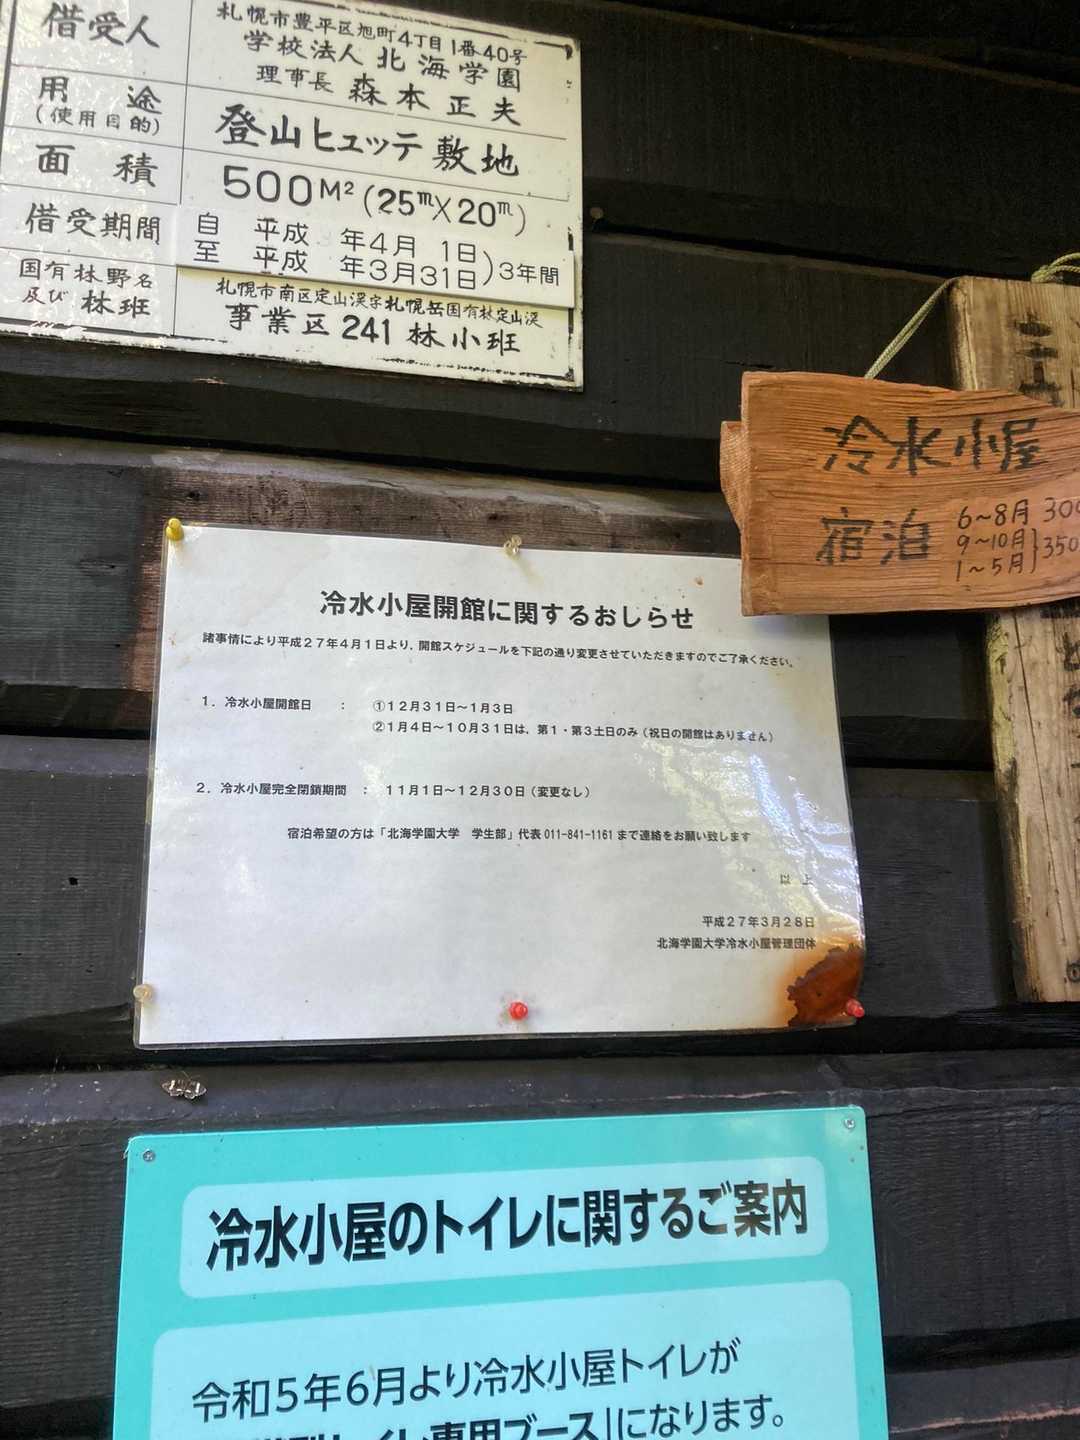 借受人
札幌市豊平区旭町4丁目1番40号
学校法人 北海学園
理事長 森本正夫
用途
(使用目的)
登山ヒュッテ敷地
面積
500M² (25m×20m)
借受期間
自 平成 年4月 1日
至 平成 年3月31日
)3年間
国有林野名
及び 林班
札幌市南区定山渓字札幌岳国有林定山渓
事業区 241 林小班
冷水小屋
宿泊
6~8月 300
9~10月
1~5月
}350
冷水小屋開館に関するおしらせ
諸事情により平成27年4月1日より、開館スケジュールを下記の通り変更させていただきますのでご了承ください。
1. 冷水小屋開館日 : ①12月31日~1月3日
②1月4日~10月31日は、第1・第3土日のみ(祝日の開館はありません)
2. 冷水小屋完全閉鎖期間 : 11月1日~12月30日(変更なし)
宿泊希望の方は「北海学園大学 学生部」代表 011-841-1161 まで連絡をお願い致します
以上
平成27年3月28日
北海学園大学冷水小屋管理団体
冷水小屋のトイレに関するご案内
令和5年6月より冷水小屋トイレが
トイレ専用ブース」になります。